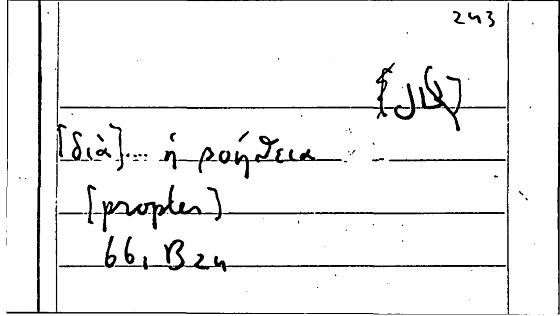 243
[διὰ]... ἡ βοήθεια
[propter]
66, B 24